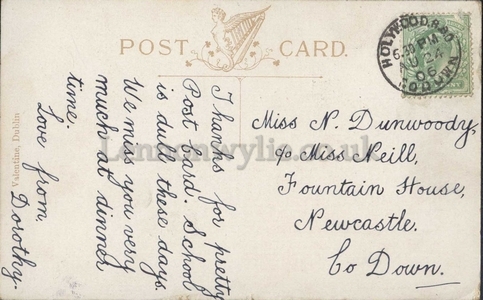 POST CARD.
HOLYWOOD R.S.O.
6.30 PM
AU 24
06
CO. DOWN
Thanks for pretty
Post bard. School
is dull these days.
We miss you very
much at dinner
time.
Love from
Dorothy.
Miss N. Dunwoody,
c/o Miss Neill,
Fountain House,
Newcastle.
Co Down.
Valentine, Dublin
Lennonwylie.co.uk